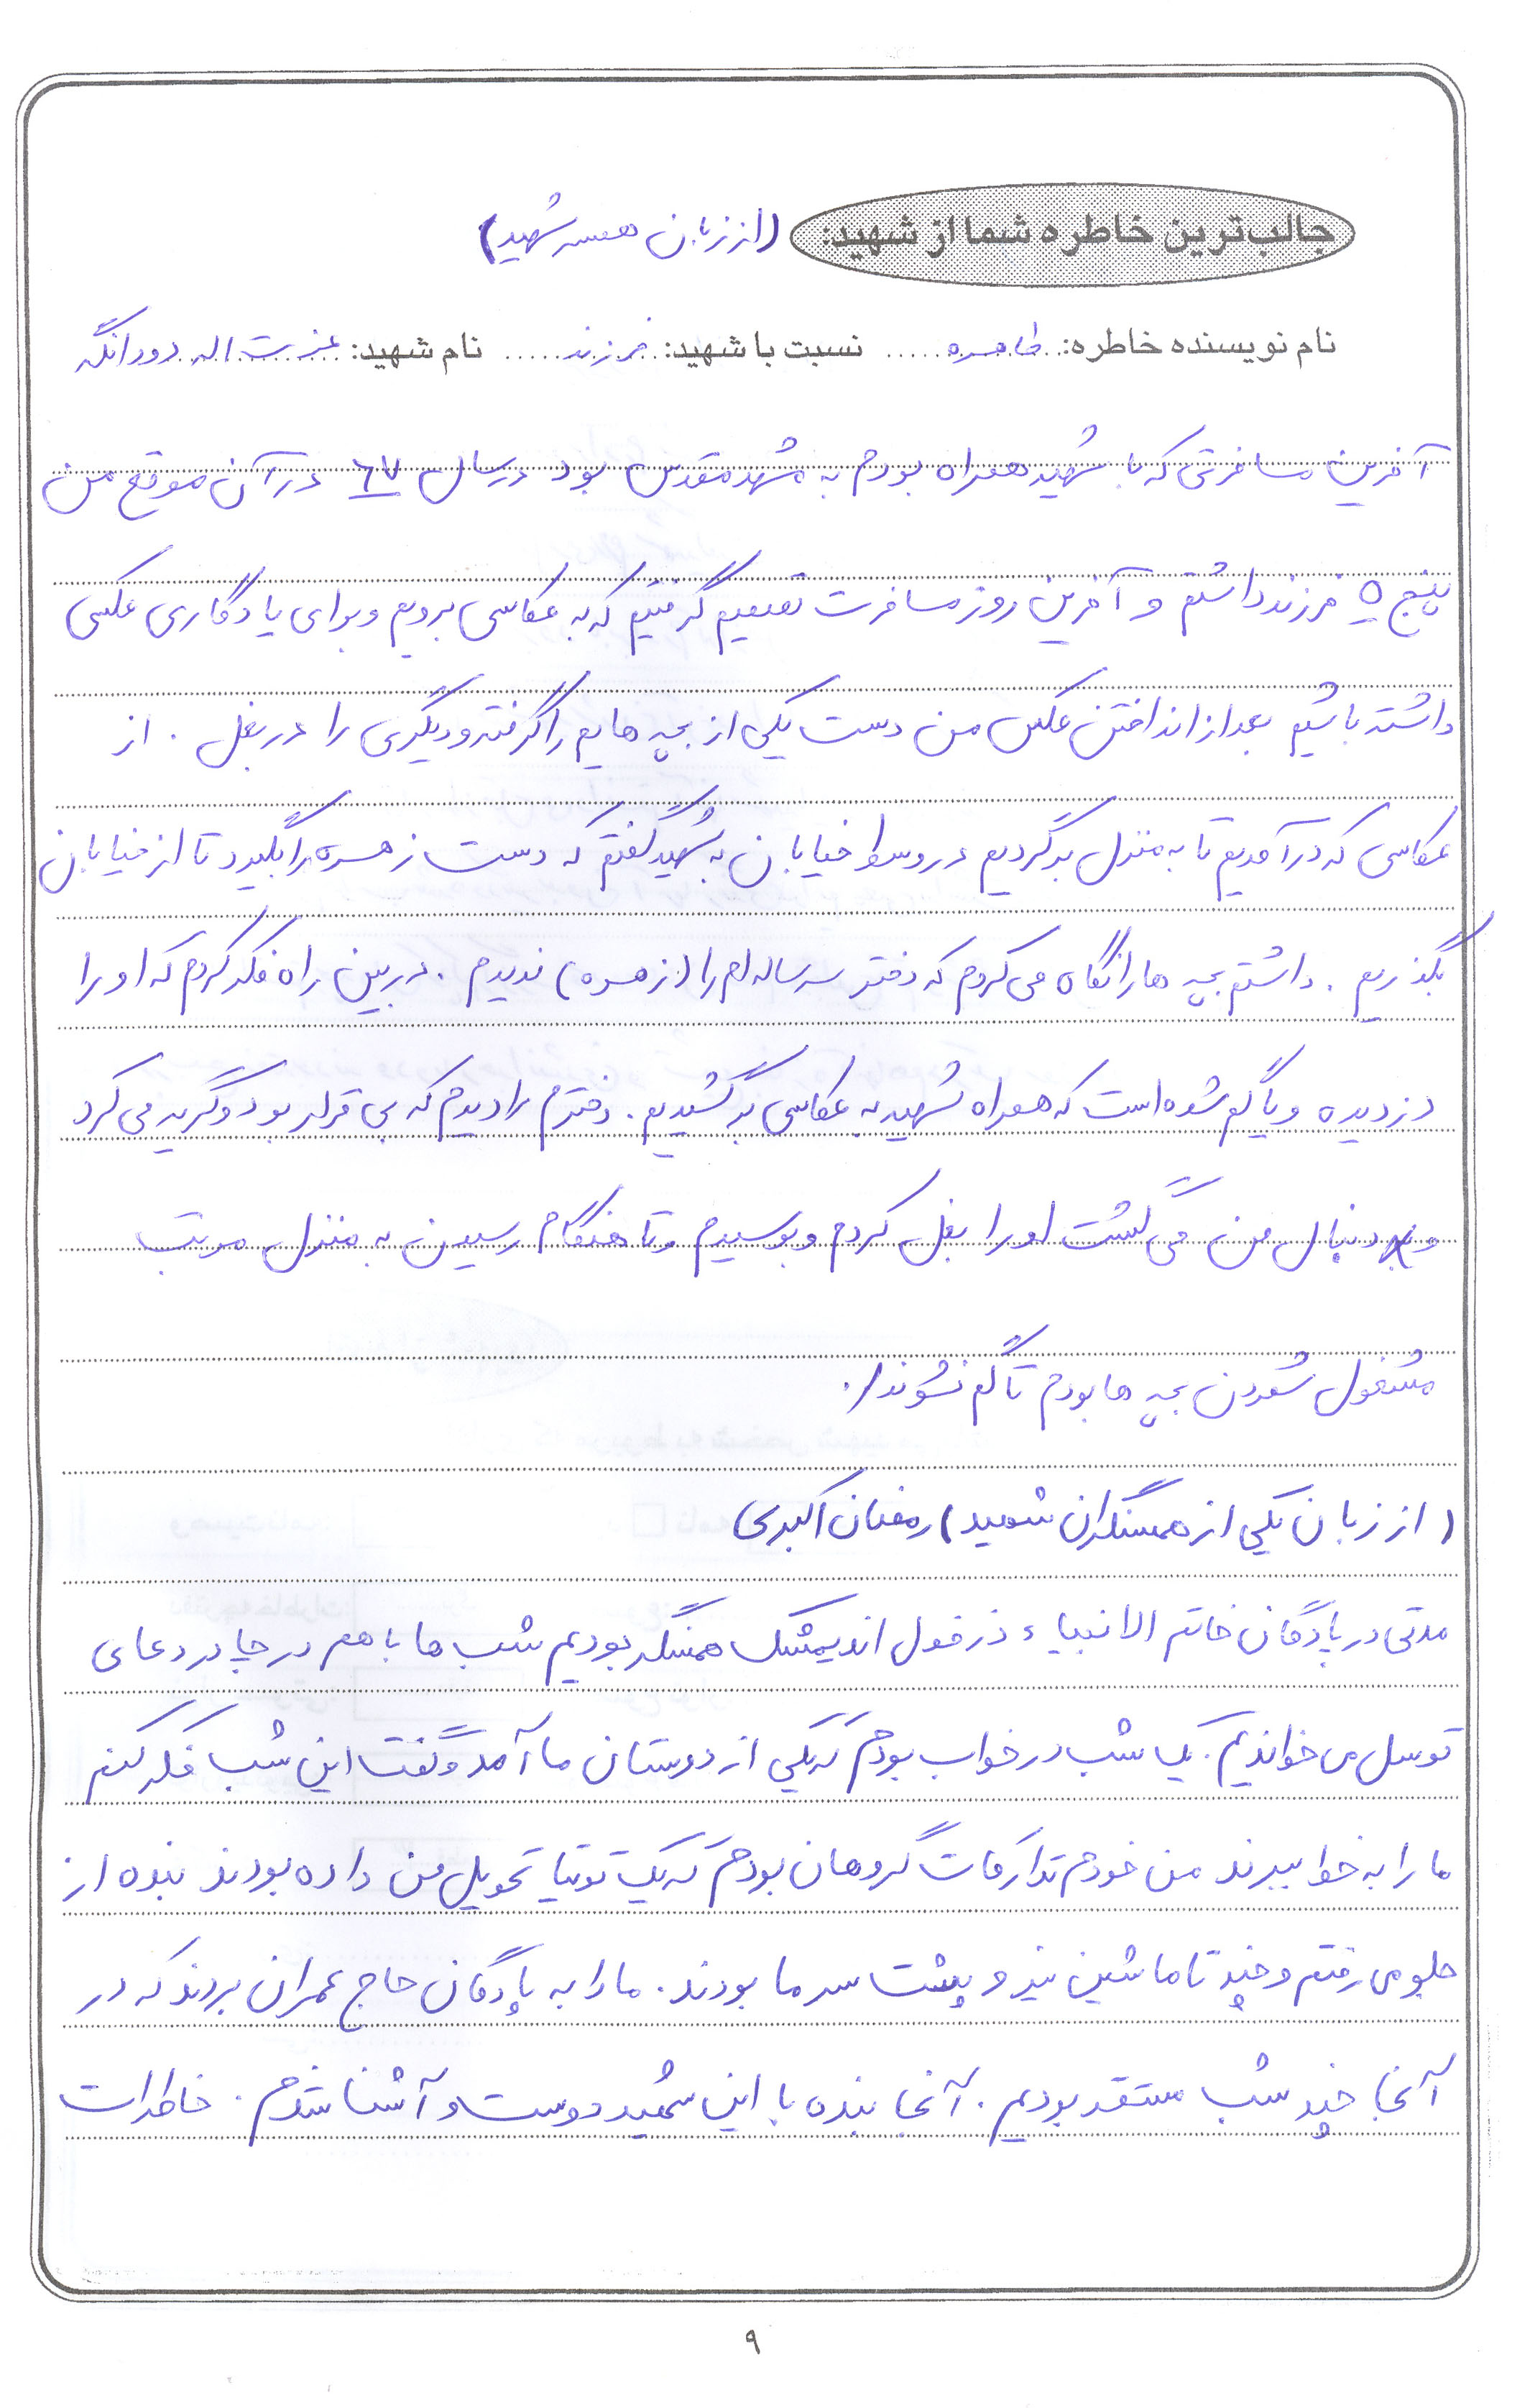 جالب‌ترین خاطره شما از شهید: (از زبان همسر شهید)
نام نویسنده خاطره: طاهره نسبت با شهید: فرزند نام شهید: عزت اله دورانگه
آخرین مسافرتی که با شهید همراه بودم به مشهد مقدس بود در سال ٦٧ در آن موقع من
پنج ۵ فرزند داشتم و آخرین روز مسافرت تصمیم گرفتیم که به عکاسی برویم و برای یادگاری عکسی
داشته باشیم بعد از انداختن عکس من دست یکی از بچه هایم را گرفته و دیگری را در بغل . از
عکاسی که در آمدیم تا به منزل برگردیم در وسط خیابان به شهید گفتم که دست زهره را بگیرد تا از خیابان
بگذریم . داشتم بچه ها را نگاه می کردم که دختر سه ساله ام را (زهره) ندیدم . در بین راه فکر کردم که او را
دزدیده و یا گم شده است که همراه شهید به عکاسی برگشتیم . دخترم را دیدم که بی قرار بود و گریه می کرد
و به دنبال من می گشت او را بغل کردم و بوسیدم و تا هنگام رسیدن به منزل مرتب
مشغول شمردن بچه ها بودم تا گم نشوند/.
(از زبان یکی از همسنگران شهید) رمضان اکبری
مدتی در پادگان خاتم الانبیاء دزفول اندیمشک همسنگر بودیم شب ها با هم در چادر دعای
توسل می خواندیم . یک شب در خواب بودم که یکی از دوستان ما آمد و گفت این شب فکر کنم
ما را به خط ببرند من خودم تدارکات گروهان بودم که یک تویتا تحویل من داده بودند بنده از
جلو می رفتم و چند تا ماشین نیرو پشت سر ما بودند . ما را به پادگان حاج عمران بردند که در
آنجا چند شب مستقر بودیم . آنجا بنده با این شهید دوست و آشنا شدم . خاطرات
۹